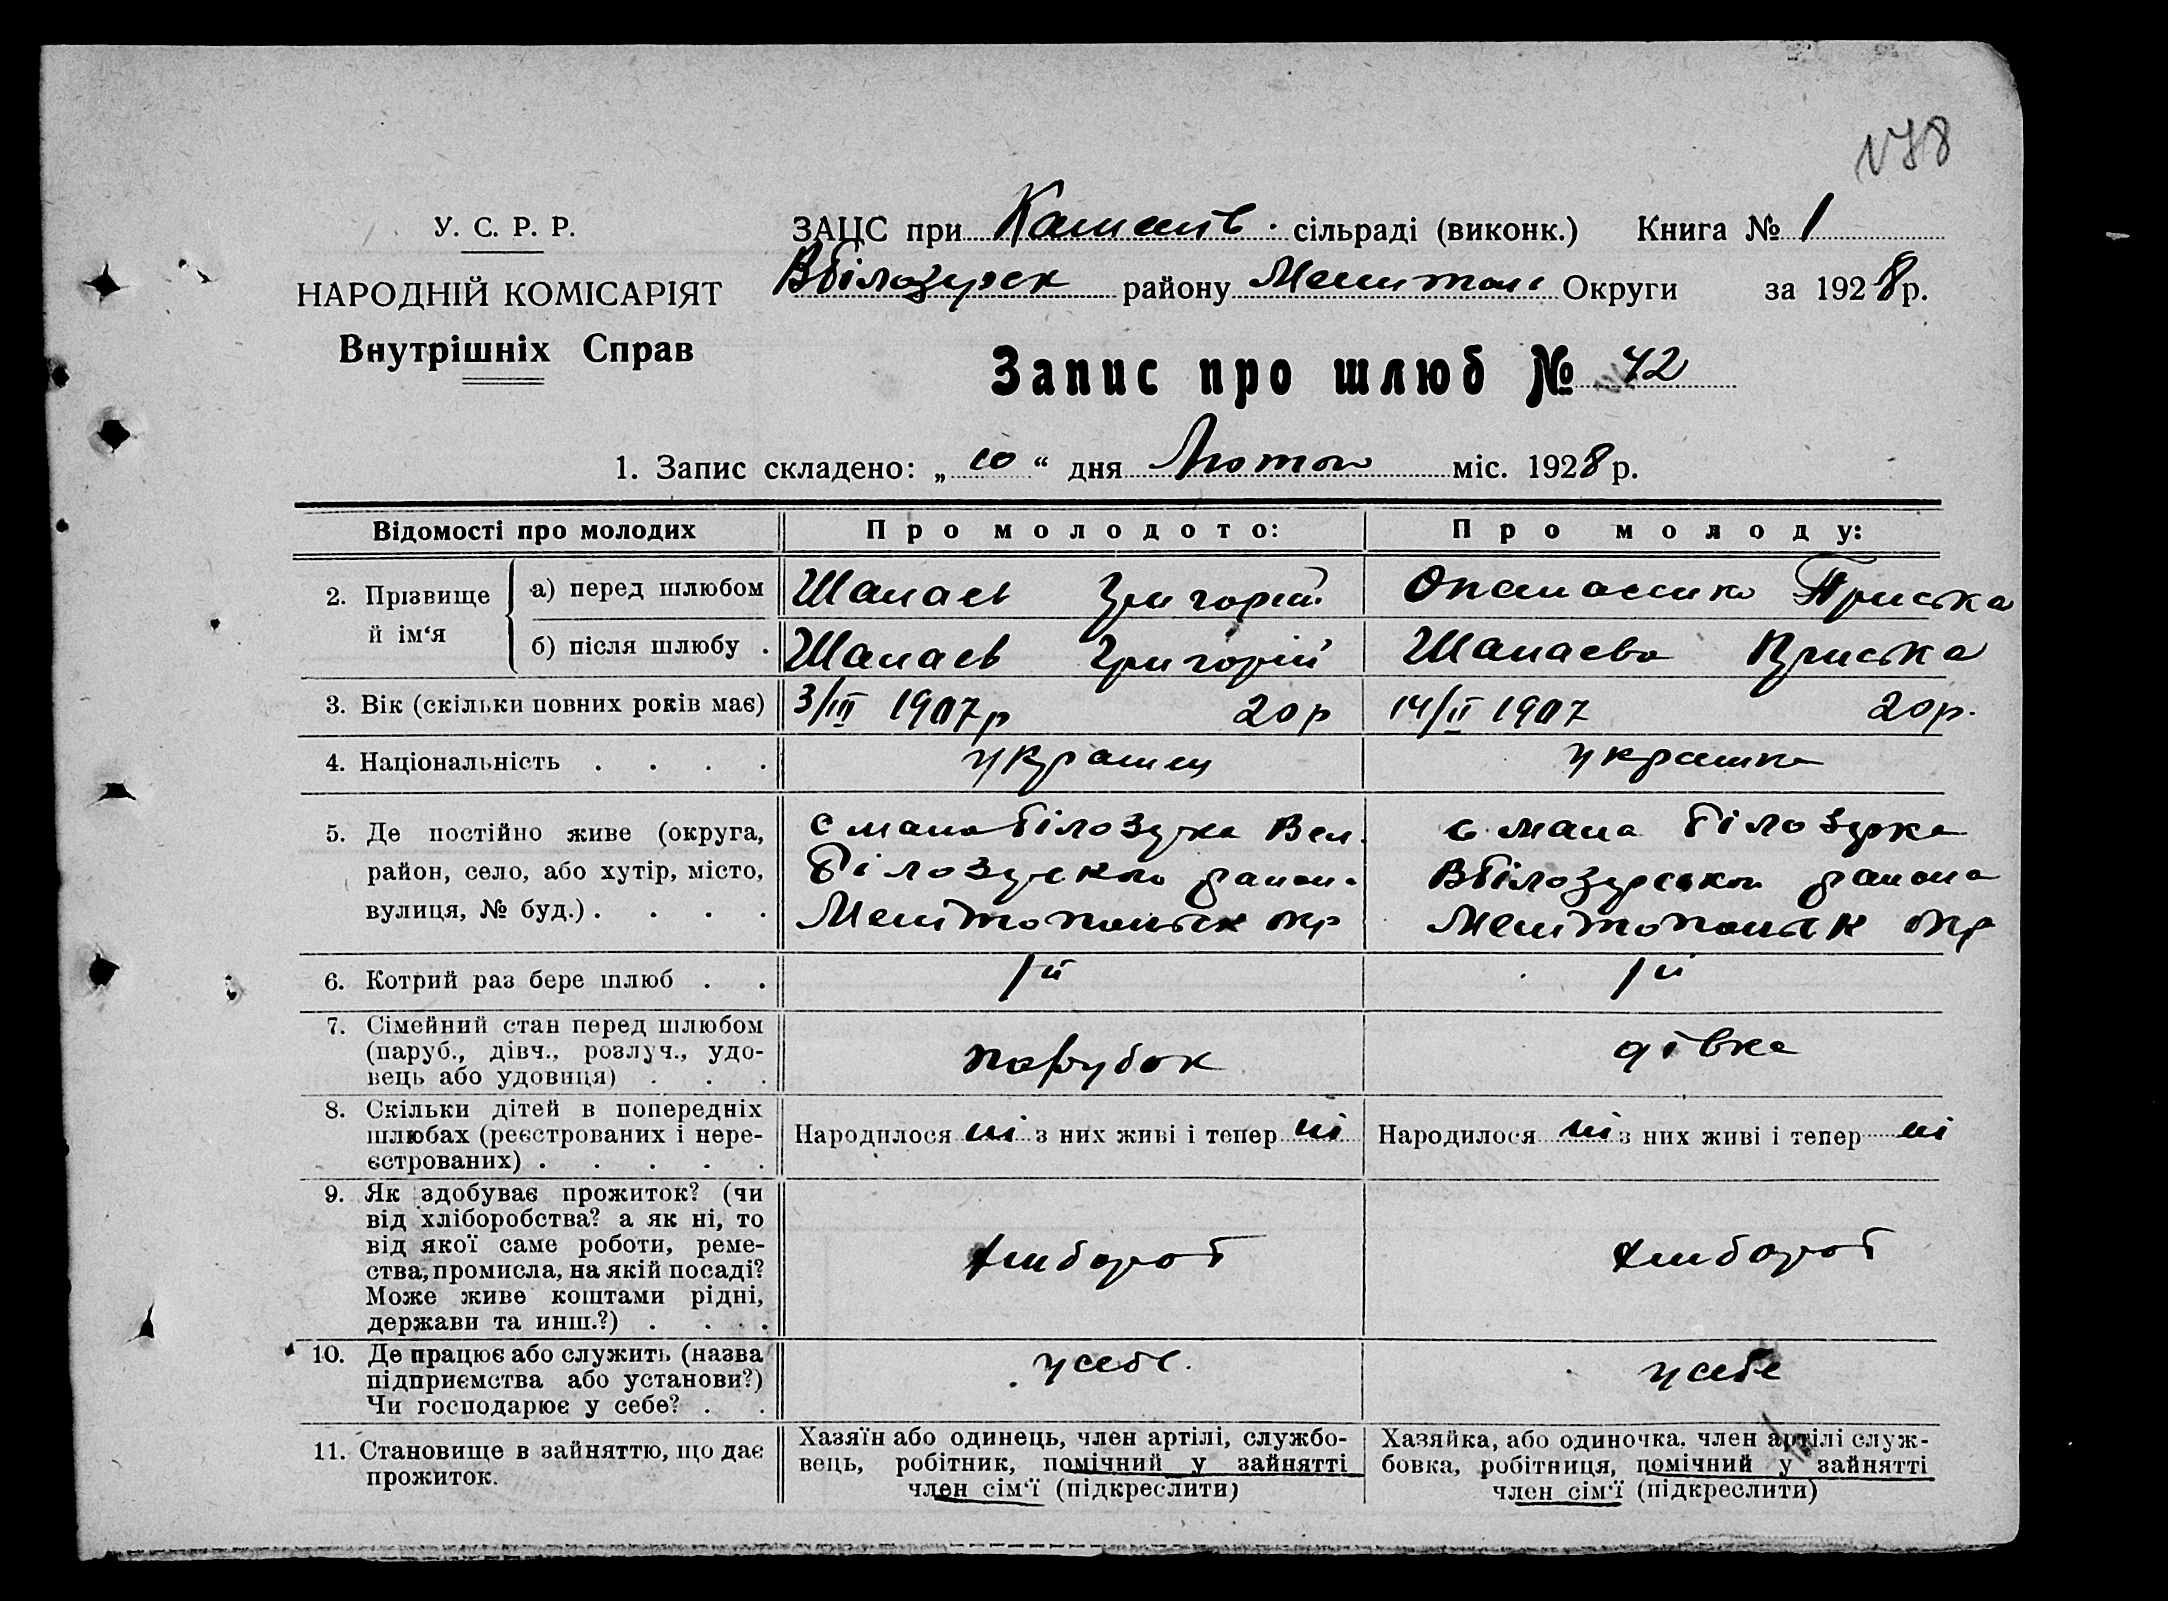 178
У. С. Р. Р.
НАРОДНІЙ КОМІСАРІЯТ
Внутрішніх Справ
ЗАЦС при сільраді (виконк.) Книга № 1
Вбілозурск району Округи за 1928 р.
Запис про шлюб № 42
1. Запис складено: „10“ дня Лютого міс. 1928 р.
Відомості про молодих
Про молодого:
Про молоду:
2. Прізвище й ім‘я
а) перед шлюбом
Шалаєв Григорій
Опанасенко Приська
б) після шлюбу .
Шалаєв Григорій
Шалаєва Приська
3. Вік (скільки повних років має)
3/III 1907 р 20 р
14/II 1907 20 р.
4. Національність . . . .
україн��ц
українка
5. Де постійно живе (округа,
район, село, або хутір, місто,
вулиця, № буд.) . . . .
с мала білозурка Вел.
білозурского район.
Мелітопольск окр
с мала білозурка
Вбілозурської района
Мелітопольск окр
6. Котрий раз бере шлюб . .
1й
1й
7. Сімейний стан перед шлюбом
(паруб., дівч., розлуч., удо-
вець або удовиця) . . .
парубок
дівка
8. Скільки дітей в попередніх
шлюбах (реєстрованих і нере-
єстрованих) . . . . .
Народилося ні з них живі і тепер ні
Народилося ні з них живі і тепер ні
9. Як здобуває прожиток? (чи
від хліборобства? а як ні, то
від якої саме роботи, реме-
ства, промисла, на якій посаді?
Може живе коштами рідні,
держави та инш.?) . . . .
хлібороб
хлібороб
10. Де працює або служить (назва
підприємства або установи?)
Чи господарює у себе? . .
у себе.
у себе
11. Становище в зайняттю, що дає
прожиток.
Хазяїн або одинець, член артілі, службо-
вець, робітник, помічний у зайнятті
член сім‘ї (підкреслити)
Хазяйка, або одиночка, член артілі служ-
бовка, робітниця, помічний у зайнятті
член сім‘ї (підкреслити)